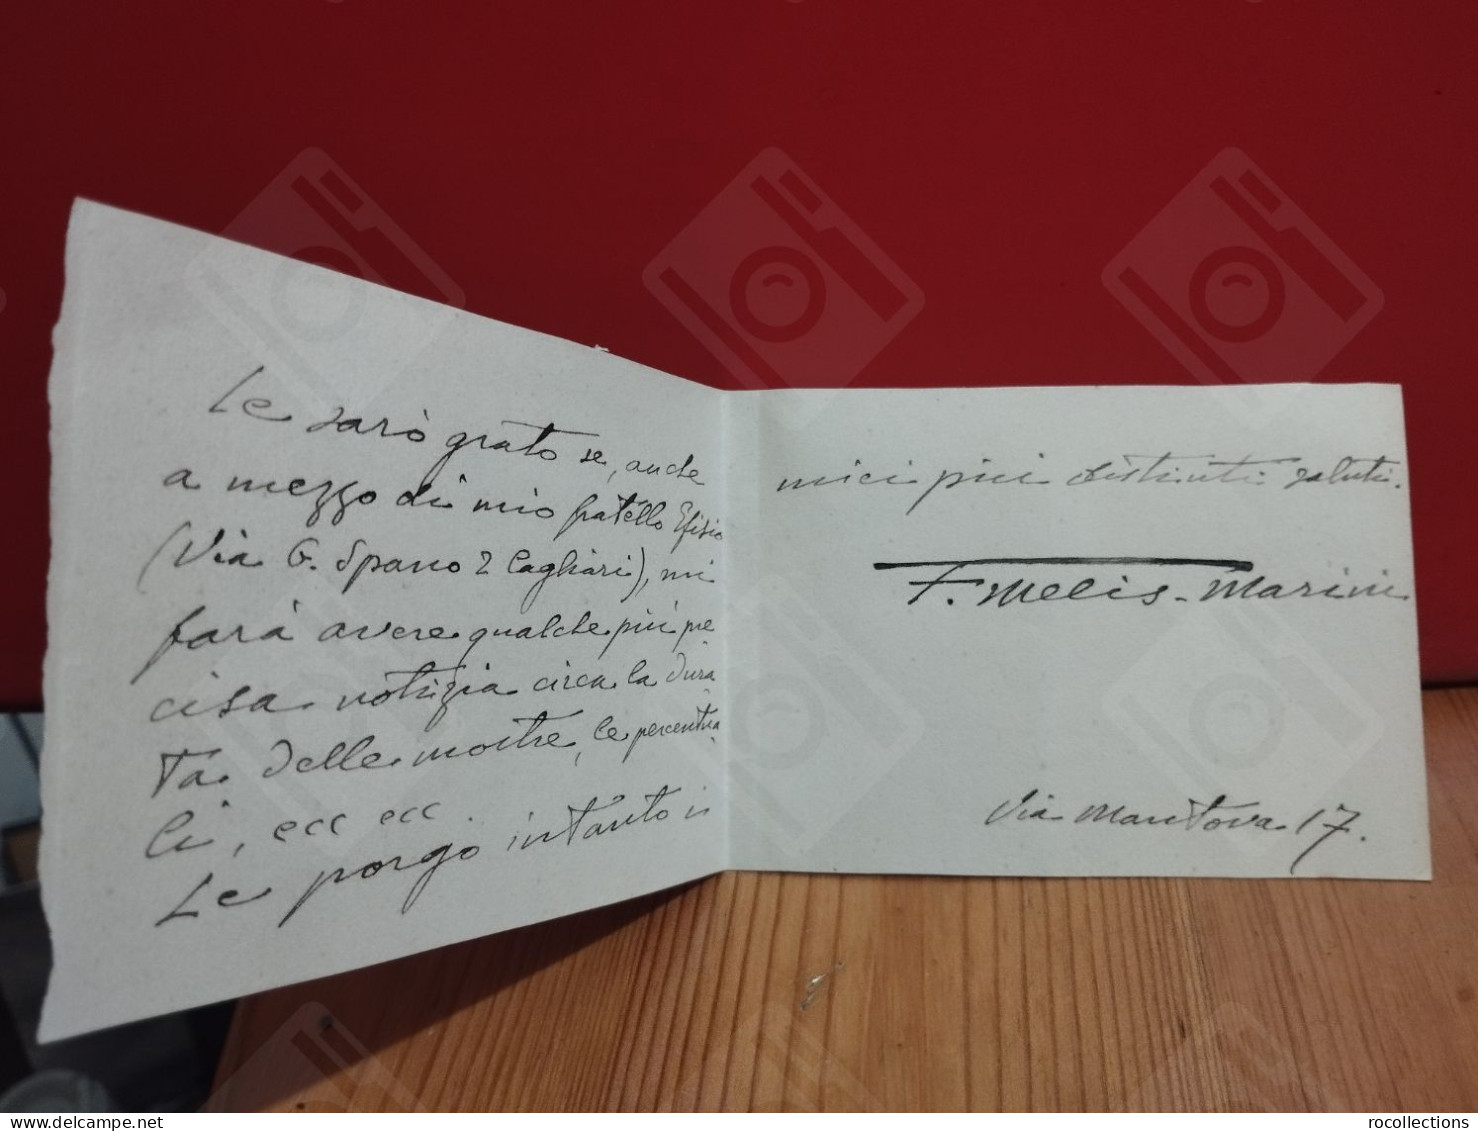 Le sarò grato se, anche
a mezzo di mio fratello Efisio
(Via G. Spano 2 Cagliari), mi
farà avere qualche più pre
cisa notizia circa la dura
ta delle mostre, le percentua
li, ecc ecc.
Le porgo intanto i
miei più distinti saluti.
F. Melis-Marini
Via Mantova 17.
rocollections